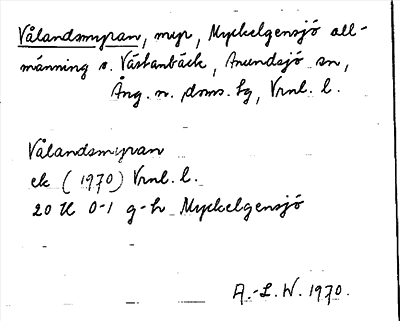 Vålandsmyran, myr, Myckelgensjö all-
männing o. Västanbäck, Anundsjö sn,
Ång. n. doms. tg, Vrnl. l.
Vålandsmyran
ek (1970) Vrnl. l.
20 H 0-1 g-h Myckelgensjö
A.-L. W. 1970.